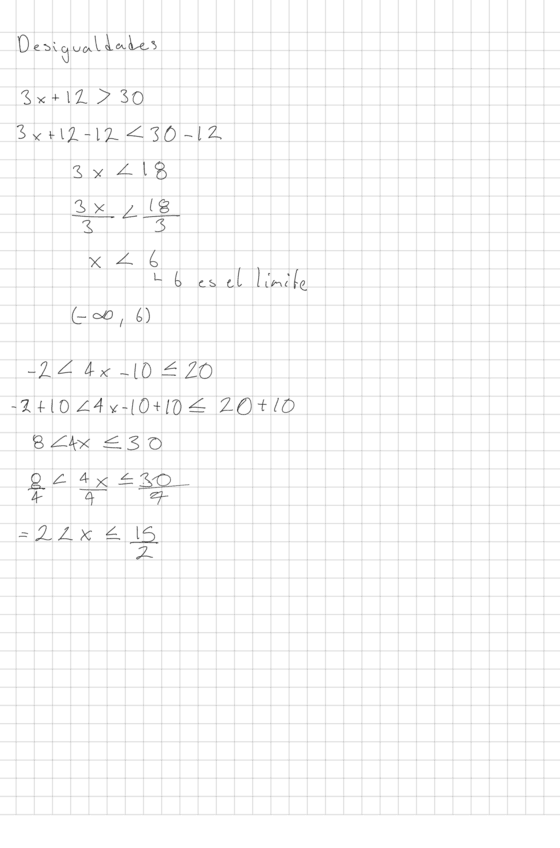 Desigualdades
3x+12 > 30
3x+12-12 < 30-12
3x < 18
3x/3 < 18/3
x < 6
6 es el limite
(-∞, 6)
-2 < 4x -10 ≤ 20
-2+10 < 4x-10+10 ≤ 20+10
8 < 4x ≤ 30
8/4 < 4x/4 ≤ 30/4
= 2 < x ≤ 15/2